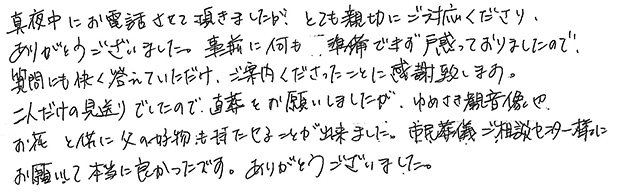 真夜中にお電話させて頂きましたが、とても親切にご対応くださり、
ありがとうございました。事前に何も準備できず戸惑っておりましたので、
質問にも快く答えていただけ、ご案内くださったことに感謝致します。
二人だけの見送りでしたので、直葬をお願いしましたが、ゆめさき観音像や
お花と供に父の好物も持たせることが出来ました。市民葬儀ご相談センター様に
お願いして本当に良かったです。ありがとうございました。